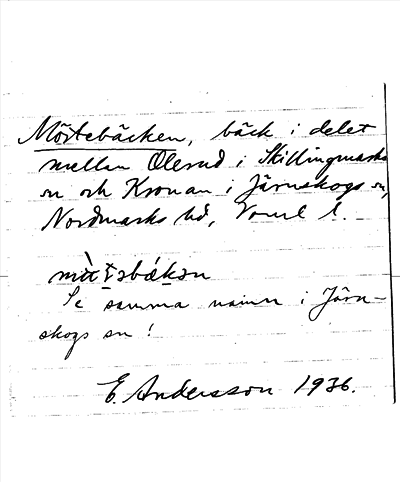 Mörtebäcken, bäck i delet
mellan Olerud i Skillingmarks
sn och Kronan i Järnskogs sn,
Nordmarks hd, Värml l.
Se samma namn i Järn-
skogs sn!
E. Andersson 1936.